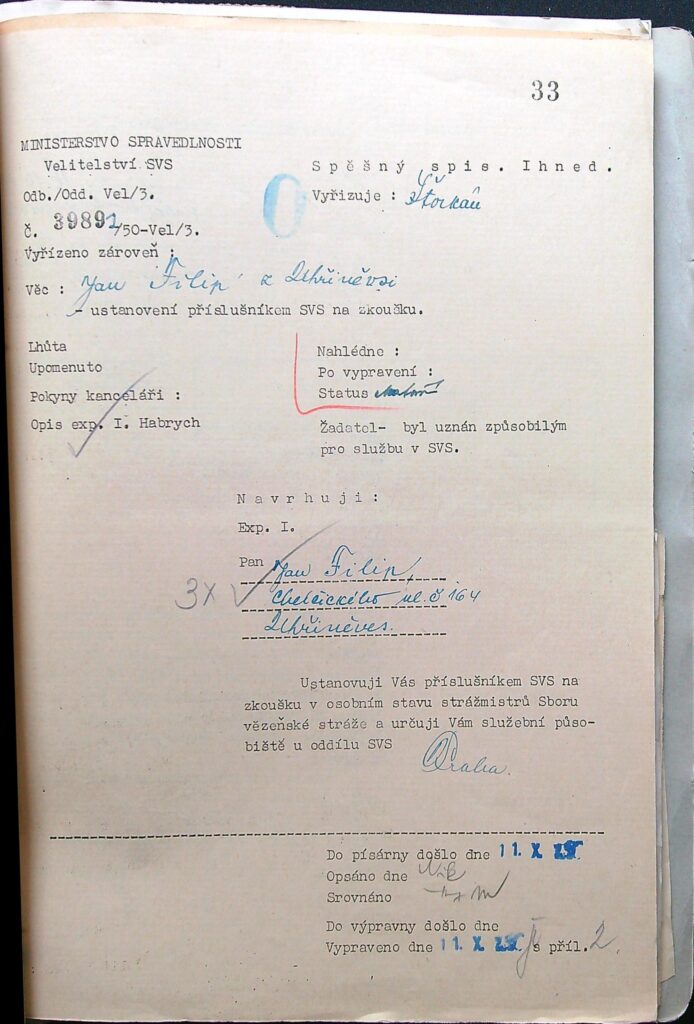 33
MINISTERSTVO SPRAVEDLNOSTI
Velitelství SVS
Spěšný spis. Ihned.
Odb./Odd. Vel/3.
Vyřizuje :
č. 39891/50-Vel/3.
Vyřízeno zároveň :
Věc : Jan Filip z Uhříněvsi
- ustanovení příslušníkem SVS na zkoušku.
Lhůta
Upomenuto
Pokyny kanceláři :
Opis exp. I. Habrych
Nahlédne :
Po vypravení :
Status
Žadatel- byl uznán způsobilým
pro službu v SVS.
Navrhuji :
Exp. I.
Pan Jan Filip,
3x
Chelčického ul. č 164
Uhříněves.
Ustanovuji Vás příslušníkem SVS na
zkoušku v osobním stavu strážmistrů Sboru
vězeňské stráže a určuji Vám služební půso-
biště u oddílu SVS
Praha.
Do písárny došlo dne 11. X.
Opsáno dne
Srovnáno
Do výpravny došlo dne
Vypraveno dne 11. X. s příl. 2.